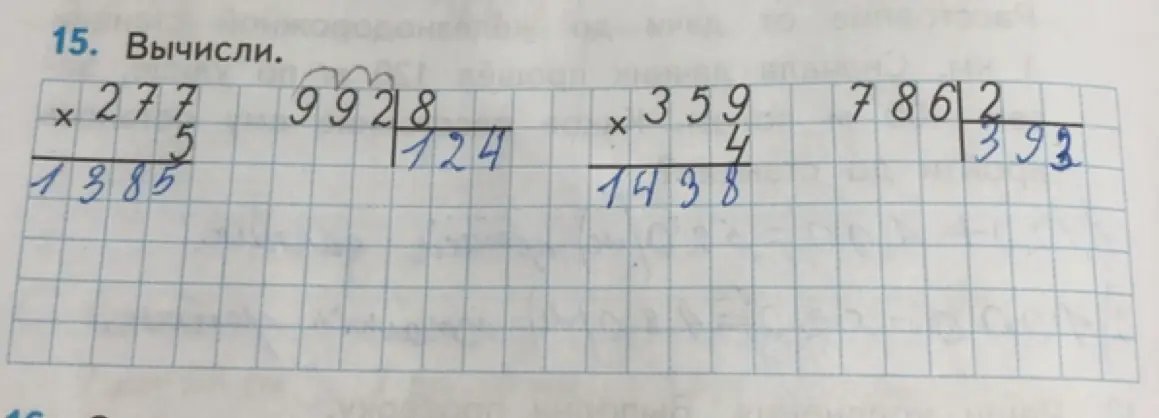 15. Вычисли.
× 277 992 8 × 359 786 2
5 124 4 393
1385 1438